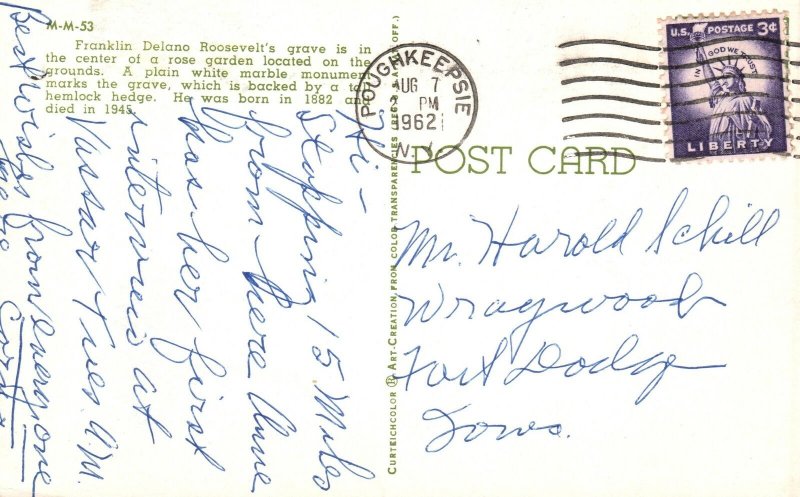 M-M-53
Franklin Delano Roosevelt's grave is in
the center of a rose garden located on the
grounds. A plain white marble monument
marks the grave, which is backed by a
hemlock hedge. He was born in 1882 and
died in 1945.
Hi-
Stopping 15 Miles
from here Anne
has her first
interview at
Vassar Tues. A.M.
Best wishes from everyone
CURTEICHCOLOR ® ART-CREATION, FROM COLOR TRANSPARENCIES (REG. U.S.A. PAT. OFF.)
POUGHKEEPSIE
AUG 7
PM
1962
N.Y.
U.S. POSTAGE 3¢
IN GOD WE TRUST
LIBERTY
POST CARD
Mr. Harold Schill
Wraywood
Fort Dodge
Iowa.